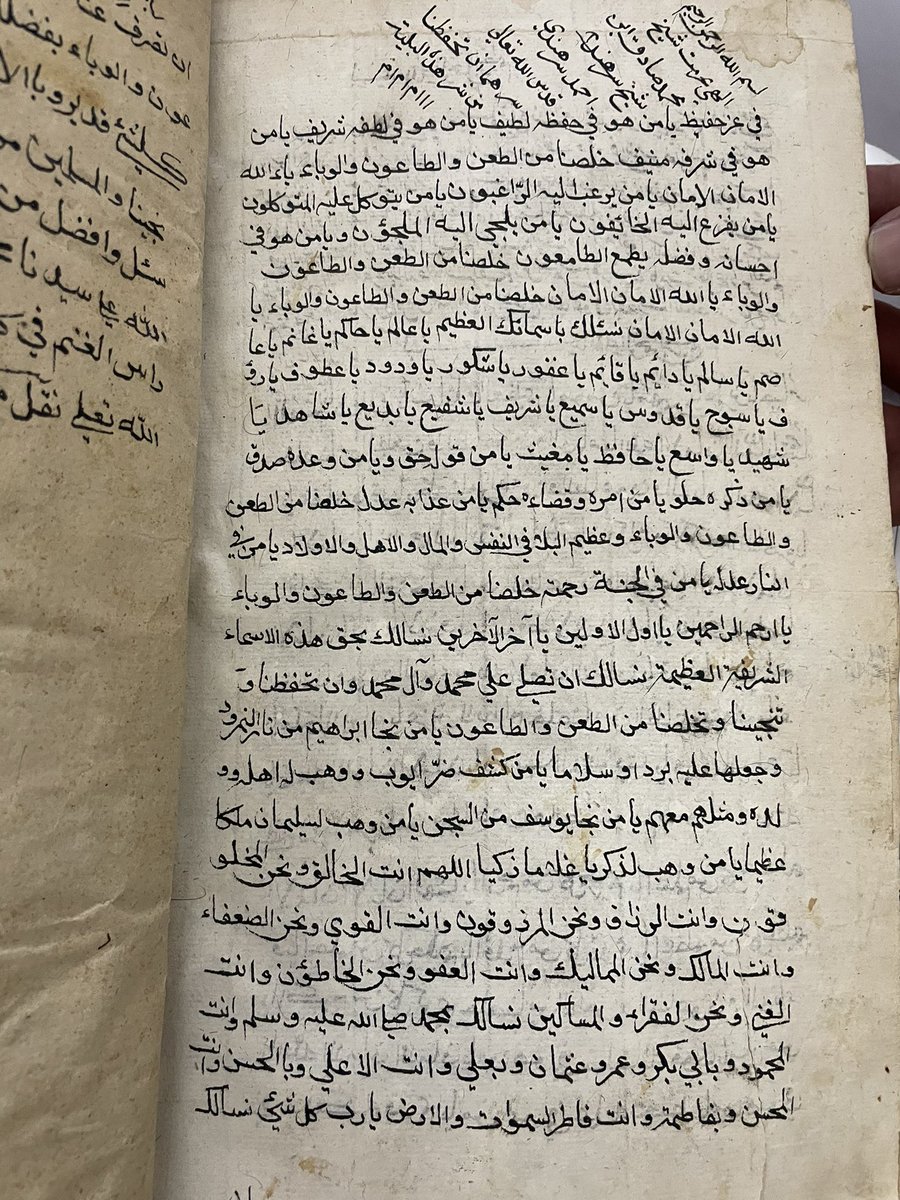 بسم الله الرحمن الرحيم
الهي بحرمت شيخ
محمد صادق ابن
شيخ سرهندي
احمد سرهندي
قدس الله تعالى
سرهما ان تحفظنا
من شر هذه البلية
ااا م ام ام
في عز حفيظ يا من هو في حفظه لطيف يا من هو في لطفه شريف يا من
هو في شرفه منيف خلصنا من الطعن والطاعون والوباء يا الله
الامان الامان يا من يرغب ليه الراغبون يا من يتوكل عليه المتوكلون
يا من يفزع اليه الخائفون يا من يلجى اليه الملجؤن ويا من هو في
احسانه وفضله يطمع الطامعون خلصنا من الطعن والطاعون
والوباء يا الله الامان الامان خلصنا من الطعن والطاعون والوباء يا
الله الامان الامان نسئلك باسمائك العظيم يا عالم يا حاكم يا غانم يا عا
صم يا سالم يا دائم يا قائم يا غفور يا شكور يا ودود يا عطوف يا رؤ
ف يا سبوح يا قدوس يا سميع يا شريف يا شفيع يا بديع يا شاهد يا
شهيد يا واسع يا حافظ يا مغيث يا من قوله حق ويا من وعده صدق
يا من ذكره حلو يا من امره وقضاءه حكم يا من عذابه عدل خلصنا من الطعن
والطاعون والوباء وعظيم البلاء في النفس والمال والاهل والاولاد يا من في
النار عدله يا من في الجنة رحمته خلصنا من الطعن والطاعون والوباء
يا ارحم الراحمين يا اول الاولين يا آخر الآخرين نسالك بحق هذه الاسماء
الشريفة العظيمة نسالك ان تصلي علي محمد وآل محمد وان تحفظنا و
تنجينا وتخلصنا من الطعن والطاعون يا من نجا ابراهيم من نار النمرود
وجعلها عليه بردا وسلاما يا من كشف ضر ايوب ووهب له اهله وو
لده ومثلهم معهم يا من نجا يوسف من السجن يا من وهب لسليمان ملكا
عظيما يا من وهب لذكريا غلاما زكيا اللهم انت الخالق ونحن المخلو
قون وانت الرزاق ونحن المرزوقون وانت القوي ونحن الضعفاء
وانت المالك ونحن المماليك وانت العفو ونحن الخاطؤن وانت
الغني ونحن الفقراء والمساكين نسالك بمحمد صلي الله عليه وسلم وانت
المحمود وبابي بكر وعمر وعثمان وبعلي وانت الاعلي وبالحسن وانت
المحسن وبفاطمة وانت فاطر السموات والارض يا رب كل شيء نسالك
عون والوباء بفضلك
بجينا والمسلمين
سئل وافضل من
الله تعلي نقل